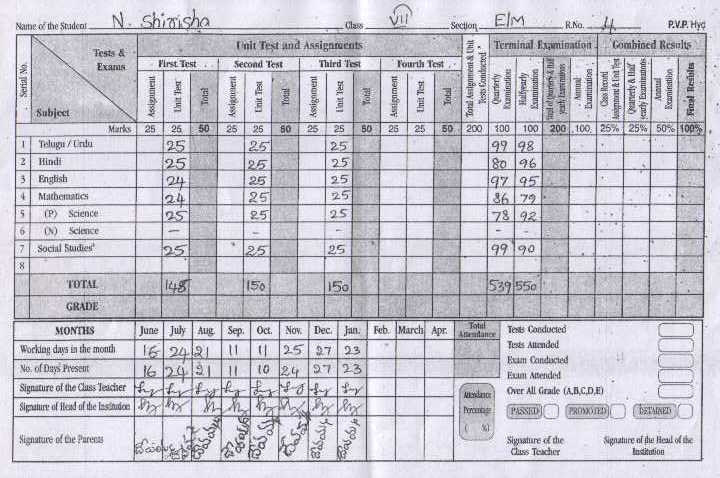 Name of the Student N. Shirisha Class VII Section E/M R.No. 4 P.V.P. Hyd
Serial No. Tests & Exams Subject Unit Test and Assignments Terminal Examination Combined Results
First Test Second Test Third Test Fourth Test
Assignment Unit Test Total Assignment Unit Test Total Assignment Unit Test Total Assignment Unit Test Total Total Assignment & Unit Tests Conducted Quarterly Examination Halfyearly Examination Total of Quarterly & Half yearly Examination Annual Examination Class Record Assignment & Unit Test Quarterly & Half yearly Examinations Annual Examination Final Results
Marks 25 25 50 25 25 50 25 25 50 25 25 50 200 100 100 200 100 25% 25% 50% 100%
1 Telugu / Urdu 25 25 25 99 98
2 Hindi 25 25 25 80 96
3 English 24 25 25 97 95
4 Mathematics 24 25 25 86 79
5 (P) Science 25 25 25 78 92
6 (N) Science - - - - -
7 Social Studies 25 25 25 99 90
8
TOTAL 148 150 150 539 550
GRADE
MONTHS June July Aug. Sep. Oct. Nov. Dec. Jan. Feb. March Apr. Total Attendance
Working days in the month 16 24 21 11 11 25 27 23
No. of Days Present 16 24 21 11 10 24 27 23
Signature of the Class Teacher
Signature of Head of the Institution
Signature of the Parents
Attendance Percentage ( %)
Tests Conducted
Tests Attended
Exam Conducted
Exam Attended
Over All Grade (A,B,C,D,E)
PASSED PROMOTED DETAINED
Signature of the Class Teacher Signature of the Head of the Institution